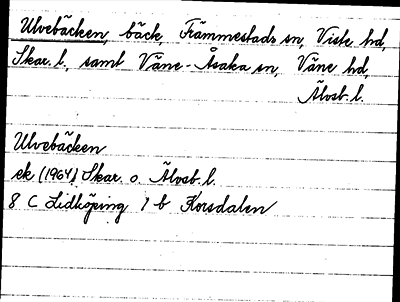 Ulvebäcken, bäck, Främmestads sn, Viste hd,
Skar. l., samt Väne-Åsaka sn, Väne hd,
Älvsb. l.
Ulvebäcken
ek (1964) Skar. o. Älvsb. l.
8 C Lidköping 1 b Korsdalen